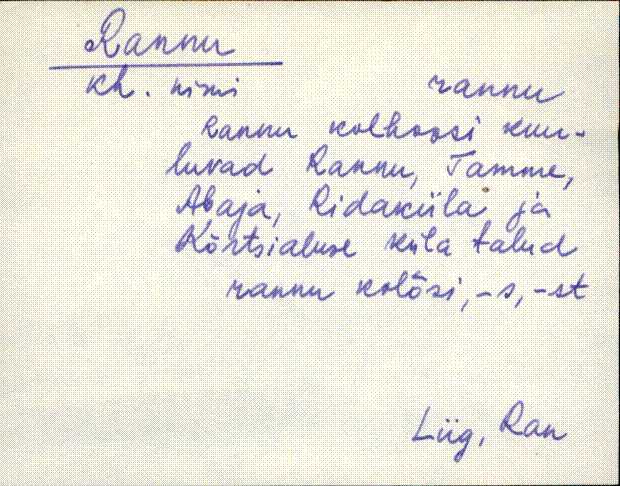 Rannu
kh. nimi rannu
Rannu kolhoosi kuu-
luvad Rannu, Tamme,
Abaja, Ridaküla ja
Kõrtsialuse küla talud
rannu kolõsi, -s, -st
Liig, Ran